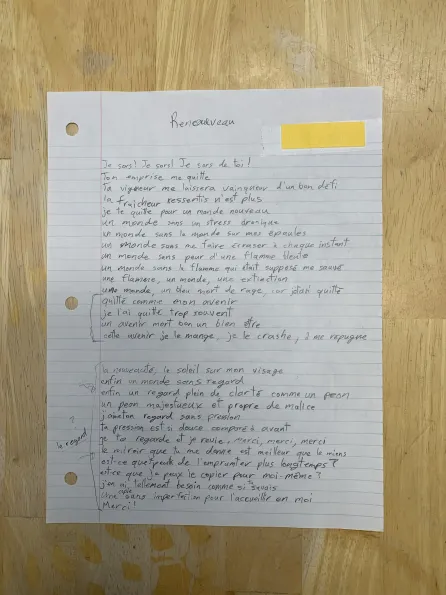 Renouveau
Je sors! Je sors! Je sors de toi!
Ton emprise me quitte
Ta vigueur me laissera vainqueur d'un bon défi
la fraicheur ressortis n'est plus
je te quitte pour un monde nouveau
un monde sans un stress chronique
un monde sans le monde sur mes épaules
un monde sans me faire creuser à chaque instant
un monde sans peur d'une flamme bleuté
un monde sans la flamme qui était supposé me sauvé
une flamme, un monde, une extinction
un monde, un lieu mort de rage, car j'ai quitté
quitté comme mon avenir
je l'ai quitté trop souvent
un avenir mort bon un bien être
cette avenir je le mange, je le crache, il me repugne
la nouveauté, le soleil sur mon visage
enfin un monde sans regard
enfin un regard plein de clarté comme un paon
un paon majestueux et propre de malice
ton regard sans pression
ta pression est si douce comparé à avant
je te regarde et je revie. Merci, merci, merci
le regard
le miroir que tu me donne est meilleur que le miens
est-ce que je peux l'emprunter plus longtemps?
est-ce que je peux le copier pour moi-même?
j'en ai tellement besoin comme si savais
copie sans imperfection pour l'accueillir en moi
Merci!